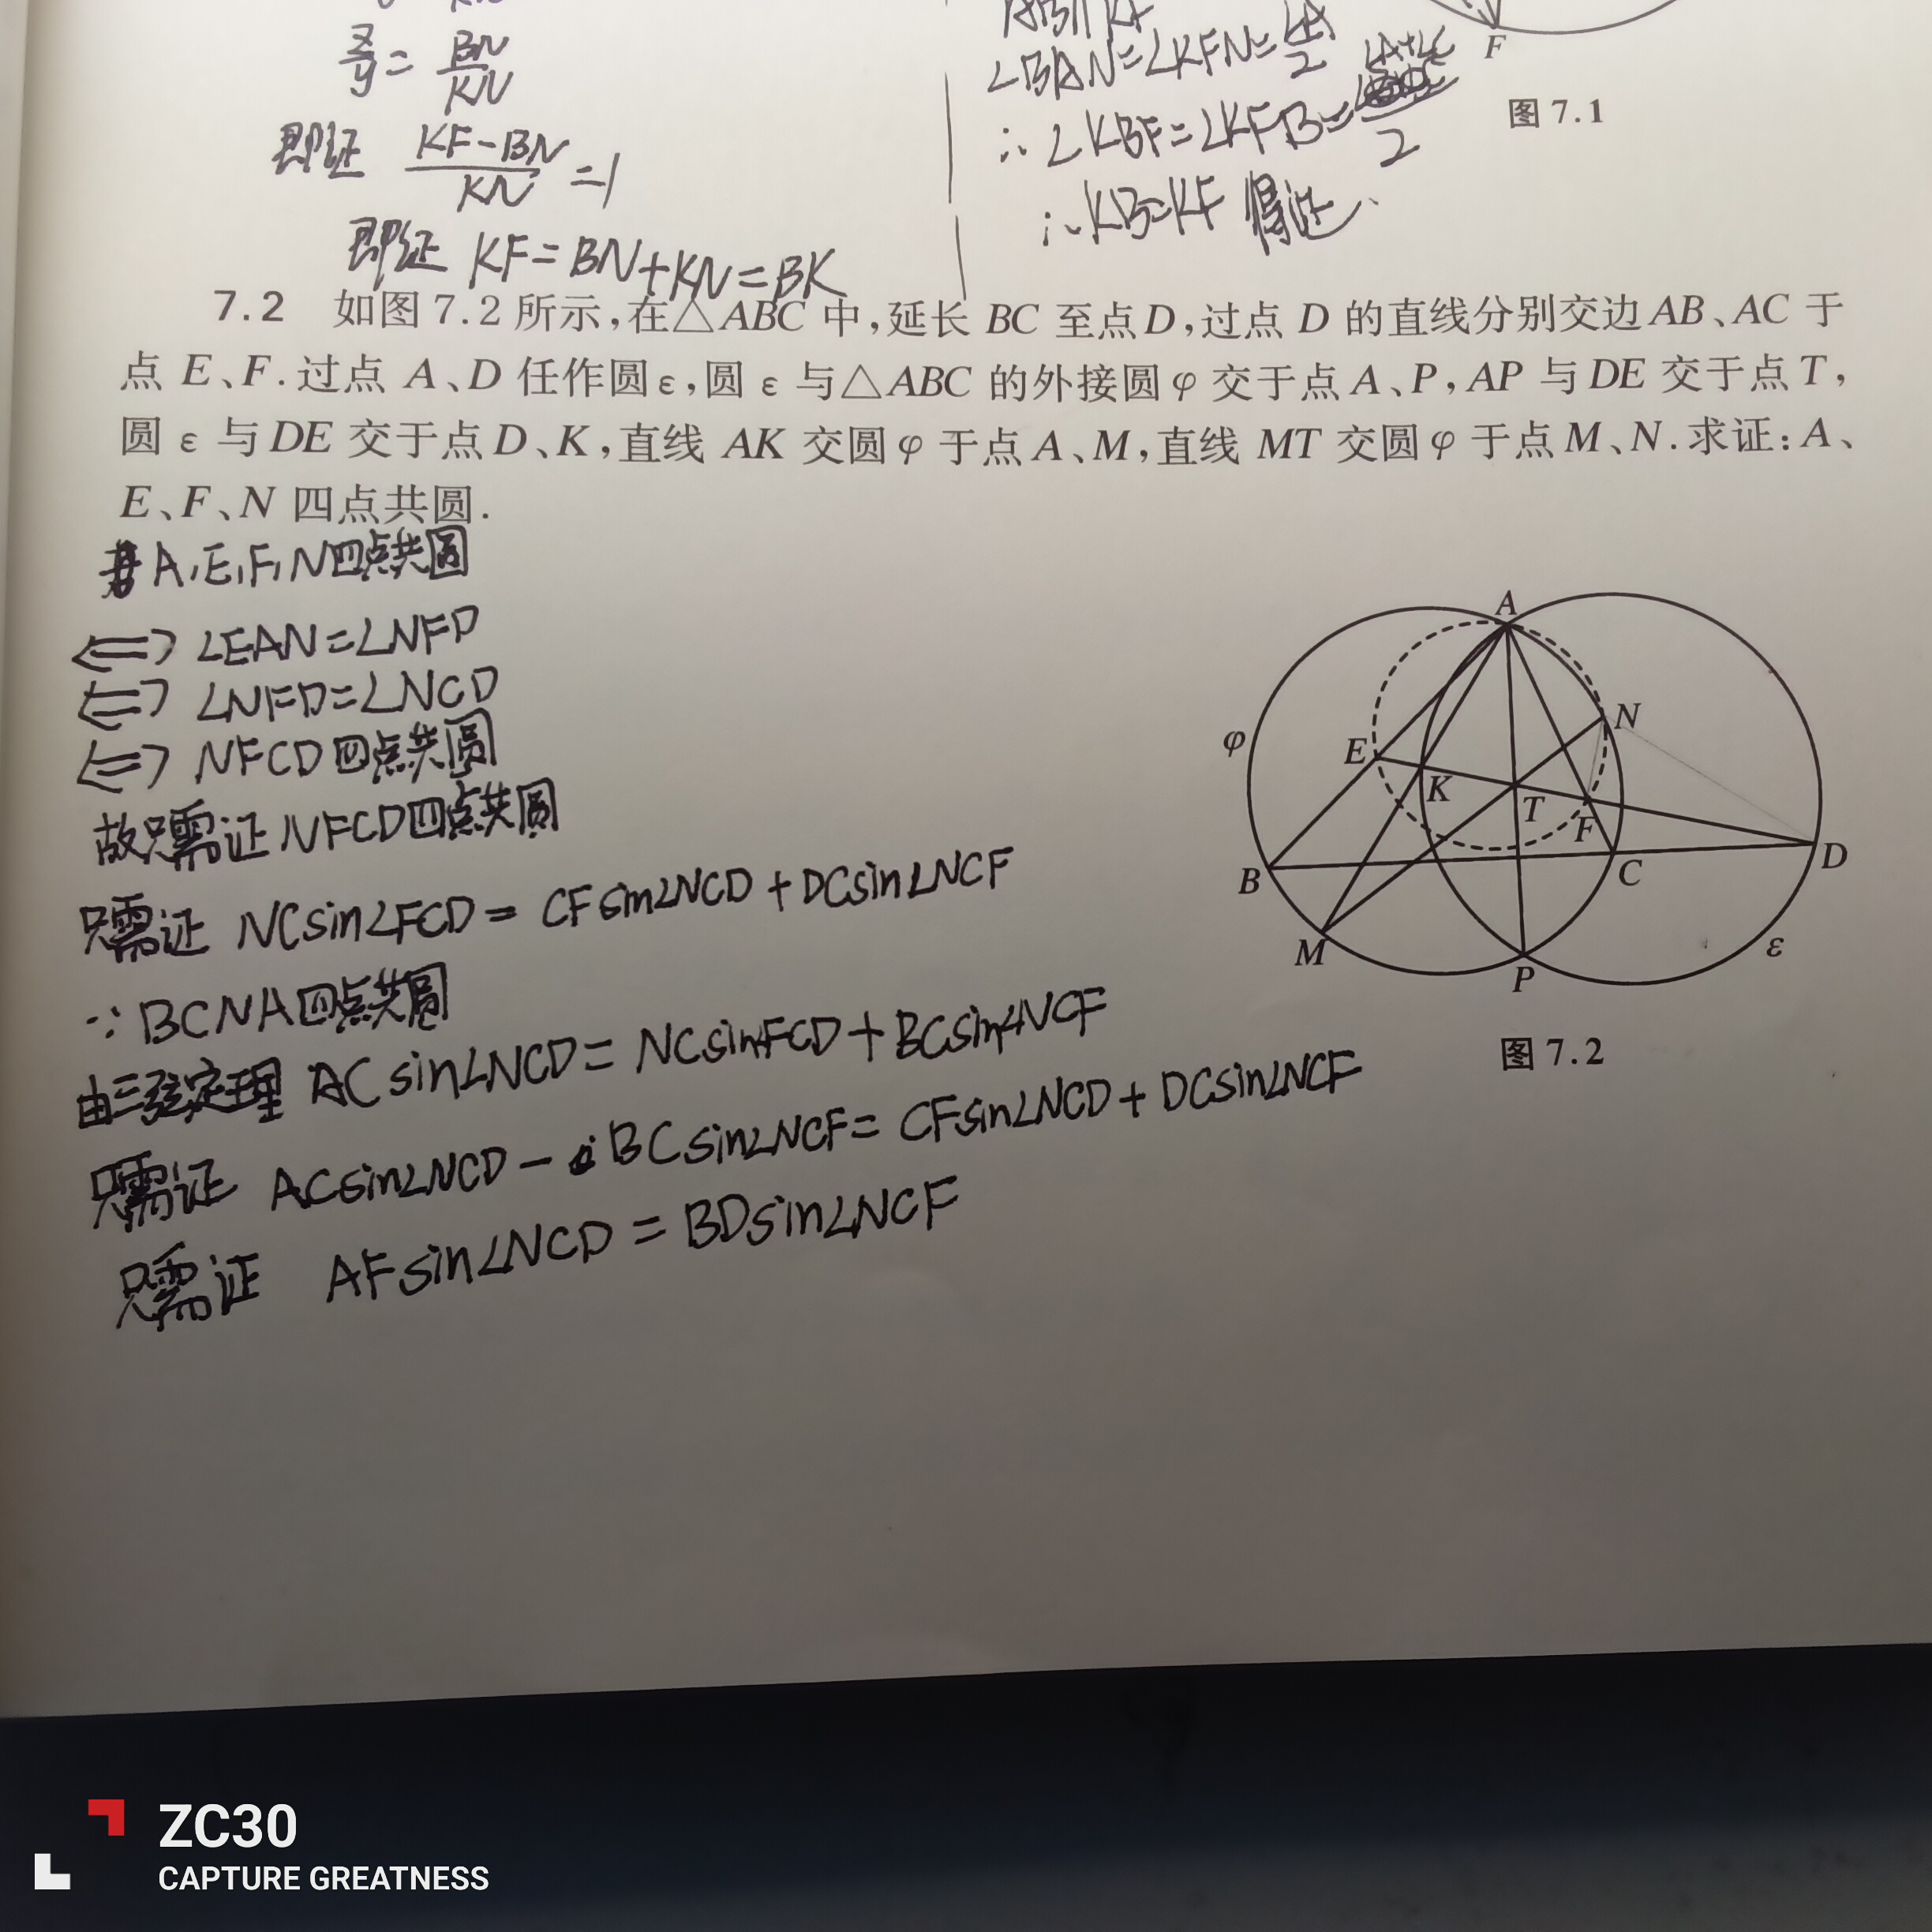 x/y = BN/KN
即证 (KF-BN)/KN =1
即证 KF=BN+KN=BK
∠BAN=∠KFN=∠A/2
∴∠KBF=∠KFB=
2
∴KB=KF 得证.
F
图 7.1
7.2 如图 7.2 所示,在△ABC 中,延长 BC 至点 D,过点 D 的直线分别交边 AB、AC 于
点 E、F.过点 A、D 任作圆 ε,圆 ε 与△ABC 的外接圆 φ 交于点 A、P,AP 与 DE 交于点 T,
圆 ε 与 DE 交于点 D、K,直线 AK 交圆 φ 于点 A、M,直线 MT 交圆 φ 于点 M、N.求证:A、
E、F、N 四点共圆.
A,E,F,N四点共圆
⟺ ∠EAN=∠NFD
⟺ ∠NFD=∠NCD
⟺ NFCD四点共圆
故只需证NFCD四点共圆
只需证 NCsin∠FCD= CFsin∠NCD+DCsin∠NCF
∵BCNA四点共圆
由三弦定理 ACsin∠NCD= NCsin∠FCD+BCsin∠NCF
只需证 ACsin∠NCD-BCsin∠NCF= CFsin∠NCD+DCsin∠NCF
只需证 AFsin∠NCD=BDsin∠NCF
A
N
φ
E
K
T
F
B
C
D
M
P
ε
图 7.2
ZC30
CAPTURE GREATNESS